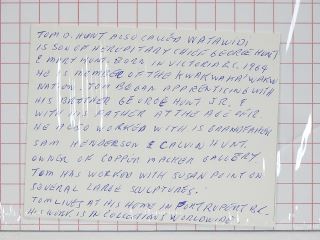 TOM D. HUNT ALSO CALLED WATAWIDI
IS SON OF HEREDITARY CHIEF GEORGE HUNT
& MARY HUNT. BORN IN VICTORIA B.C. 1964
HE IS MEMBER OF THE KWAKWAKA'WAKW
NATION. TOM BEGAN APPRENTICING WITH
HIS BROTHER GEORGE HUNT JR. &
WITH HIS FATHER AT THE AGE OF 12.
HE ALSO WORKED WITH IS GRANDFATHER
SAM HENDERSON & CALVIN HUNT.
OWNER OF COPPER MAKER GALLERY
TOM HAS WORKED WITH SUSAN POINT ON
SEVERAL LARGE SCULPTURES.
TOM LIVES AT HIS HOME IN FORT RUPERT B.C.
HIS WORK IS IN COLLECTIONS WORLDWIDE